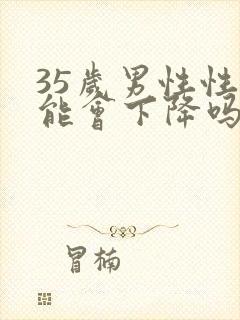 35歲男性性
能會下降吗
冒楠